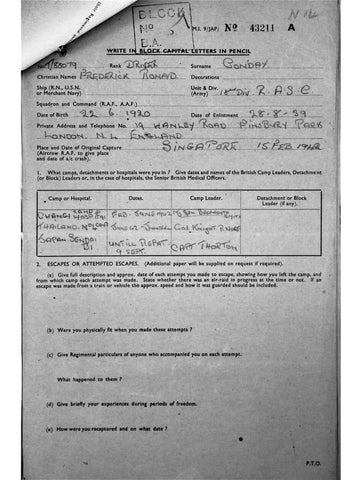 BLOCK
No
B.A.
M.I. 9/JAP/ No 43211 A
WRITE IN BLOCK CAPITAL LETTERS IN PENCIL
Rank DRIVER Surname GONDAY
Christian Names FREDERICK RONAYD Decorations
Ship (R.N., U.S.N. or Merchant Navy) Unit & Div. (Army) 18th DIV R.A.S.C
Squadron and Command (R.A.F., A.A.F.)
Date of Birth 22 6. 1920 Date of Enlistment 28-8-39
Private Address and Telephone No. 19 HANLEY ROAD FINSBURY PARK
LONDON. N.4 ENGLAND
Place and Date of Original Capture SINGAPORE 15 FEB 1942
(Aircrew R.A.F. to give place
and date of a/c crash).
1. What camps, detachments or hospitals were you in? Give dates and names of the British Camp Leaders, Detachment
(or Block) Leaders or, in the case of hospitals, the Senior British Medical Officers.
Camp or Hospital. Dates. Camp Leader. Detachment or Block Leader (if any).
CHANGI CAMP & HOSP
THAILAND. COL KNIGHT
JAPAN SENDAI UNTILL REPAT CAPT THORTON
9 SEPT.
2. ESCAPES OR ATTEMPTED ESCAPES. (Additional paper will be supplied on request if required).
(a) Give full description and approx. date of each attempt you made to escape, showing how you left the camp, and
from which camp each attempt was made. State whether there was an air-raid in progress at the time or not. If an
escape was made from a train or vehicle the approx. speed and how it was guarded should be included.
(b) Were you physically fit when you made these attempts?
(c) Give Regimental particulars of anyone who accompanied you on each attempt.
What happened to them?
(d) Give briefly your experiences during periods of freedom.
(e) How were you recaptured and on what date?
P.T.O.